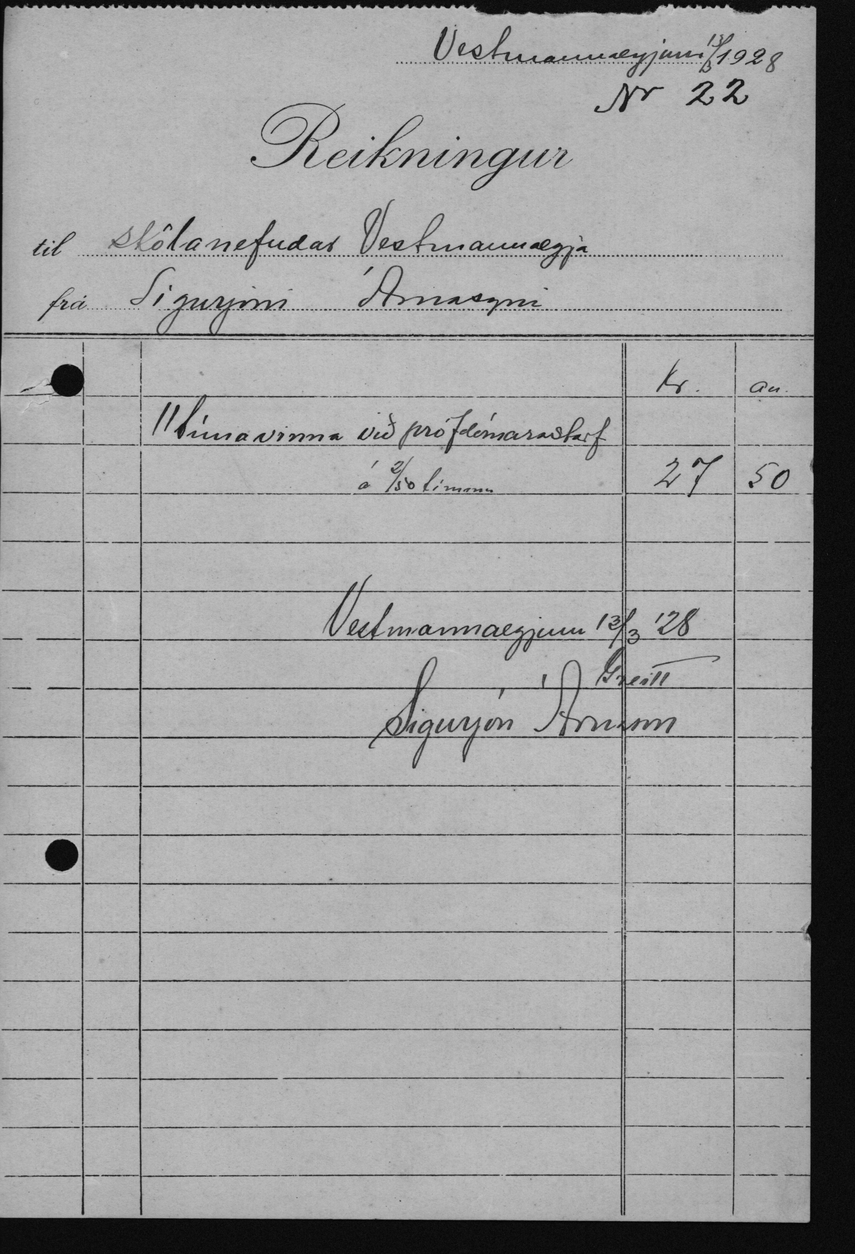 Vestmannaeyjum 13/3 1928
Nr 22
Reikningur
til skólanefndar Vestmannaeyja
frá Sigurjóni Árnasyni
Kr. au.
11 tímavinna við prófdómarastarf
á 2/50 tímann 27 50
Vestmannaeyjum 13/3 '28
Greitt
Sigurjón Árnason